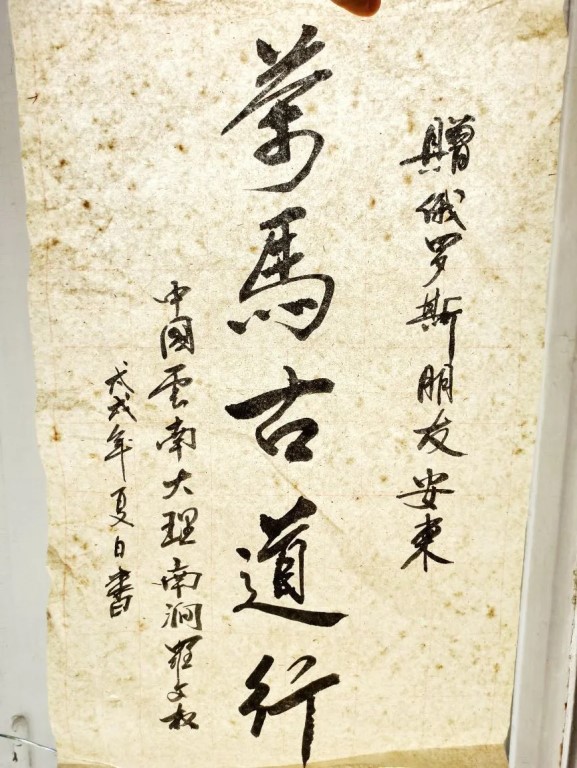 贈俄罗斯朋友安東
茶馬古道行
中國云南大理南涧羅文权
戊戌年夏日書